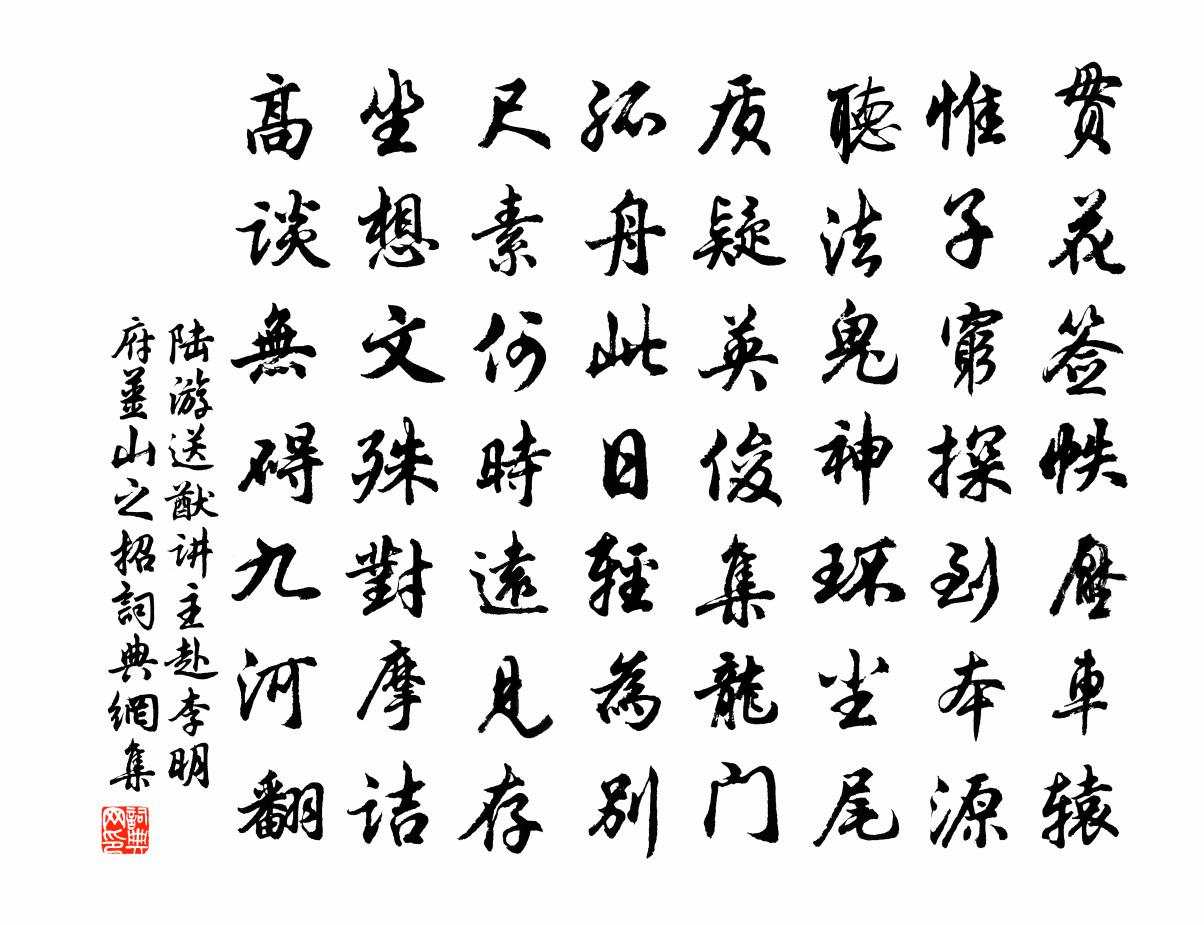 贯花签帙壓車辕
惟子窮探到本源
聽法鬼神环坐尾
质疑英俊集龍门
孤舟此日輕為别
尺素何時遠見存
坐想文殊對摩诘
高谈無碍九河翻
陆游送猷讲主赴李明
府薑山之招詞典網集
詞典
网印